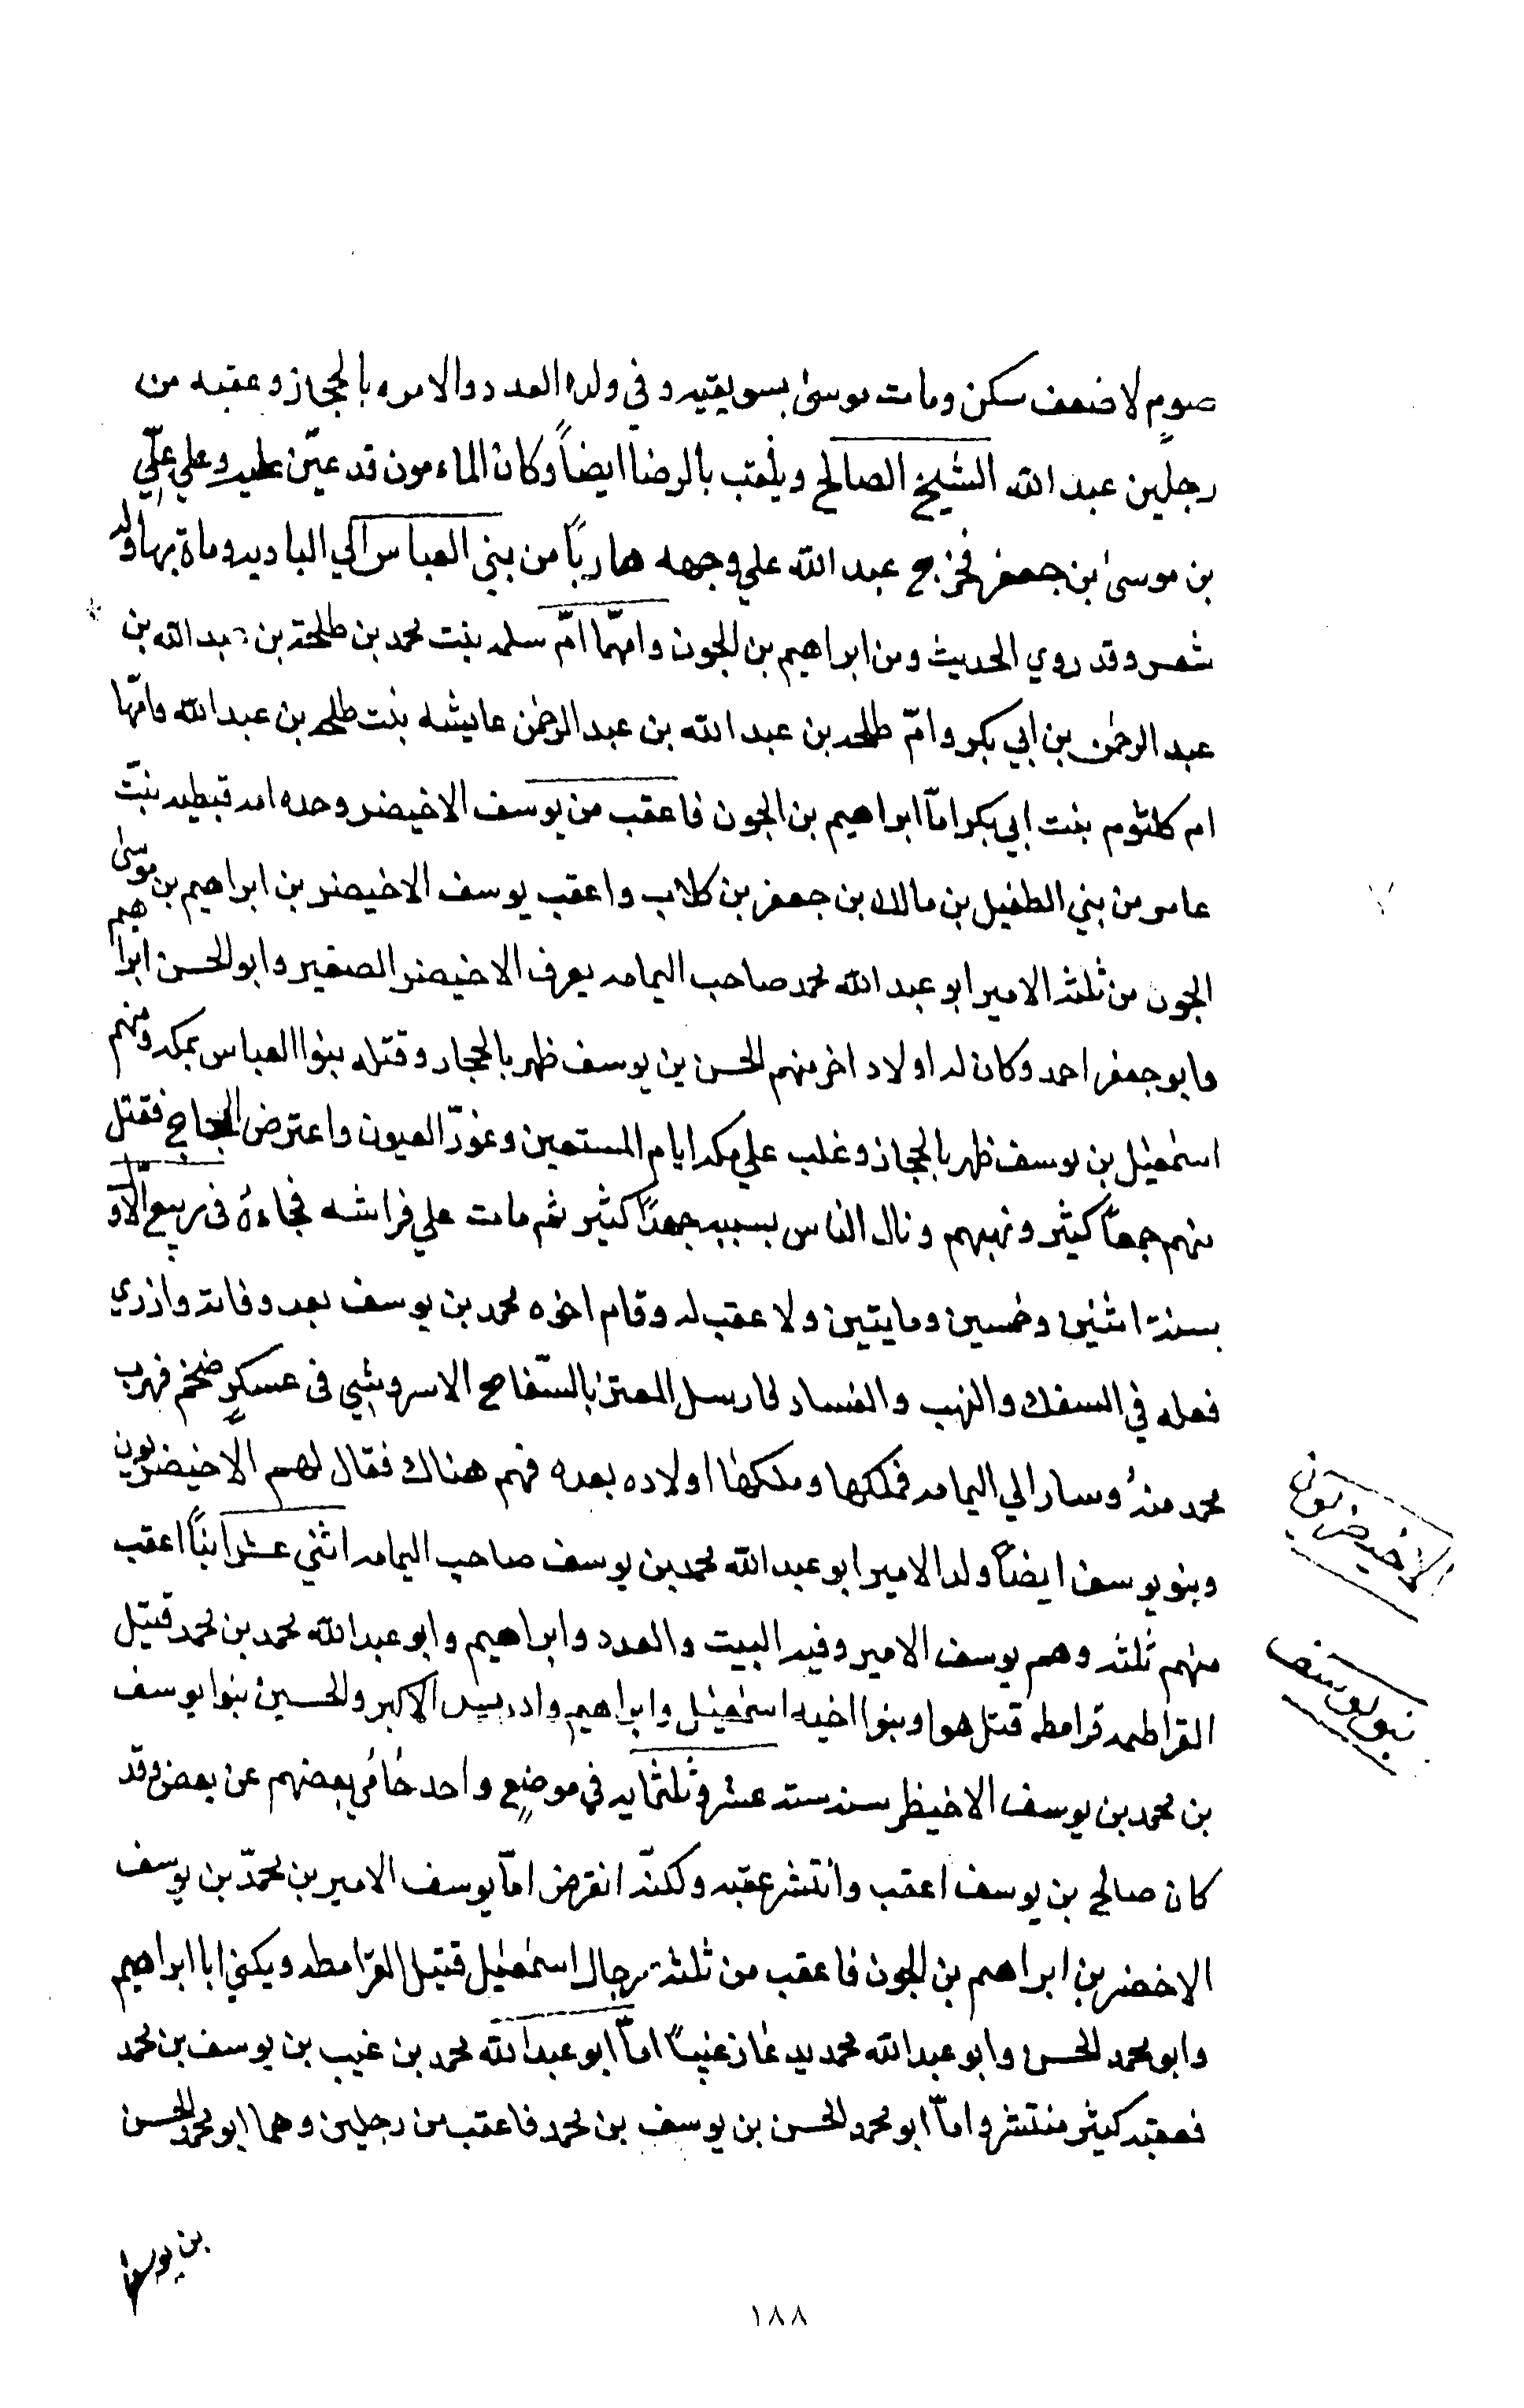 صومٍ لا ضعف سكن ومات موسىٰ بسويقيه وفي ولده العدد والامره بالحجاز وعقبه من
رجلين عبد الله الشيخ الصالح ويلقب بالرضا ايضاً وكان الماءمون قد عيّن عليه وعلي علّي
بن موسىٰ بن جعفر فخرج عبد الله علي وجهه هارباً من بني العباس الي الباديه وماة بها وله
شعر وقد روي الحديث ومن ابراهيم بن الجون وامهّما امّ سلمه بنت محمد بن طلحة بن عبد الله بن
عبد الرحمٰن بن ابي بكر وامّ طلحه بن عبد الله بن عبد الرحمٰن عايشه بنت طلحه بن عبد الله وامّها
ام كلثوم بنت ابي بكر امّا ابراهيم بن الجون فاعقب من يوسف الاخيضر وحده امه قبطيه بنتّ
عامر من بني الطفيل بن مالك بن جعفر بن كلاب واعقب يوسف الاخيضر بن ابراهيم بن موسىٰ
الجون من ثلثه الامير ابو عبد الله محمد صاحب اليمامه يعرف الاخيضر الصغير وابو الحسن ابراهيم
وابو جعفر احمد وكان له اولاد اخر منهم الحسن بن يوسف ظهر بالحجاز وقتله بنوا العباس بمكه ومنهم
اسمٰعيل بن يوسف ظهر بالحجاز وغلب علي مكه ايام المستعين وغوّر العيون واعترض الحجاج فقتل
منهم جمعاً كثير ونهبهم ونال الناس بسببه جهداً كثير ثم مات علي فراشه فجاءةً فى ربيع الآو
بسنة اثنين وخمسين ومايتين ولا عقب له وقام اخوه محمد بن يوسف بعد وفاته وازري
فعله في السفك والنهب والفساد فارسل المعتز بالسّفاح الاسروشي فى عسكرٍ ضخم فهرب
محمد منهُ وسار الي اليمامه فملكها وملكها اولاده بعده فهم هناك فقال لهم الآخيضريون
وبنو يوسف ايضاً ولد الامير ابو عبد الله محمد بن يوسف صاحب اليمامه اثني عشر ابناً اعقب
منهم ثلثه وهم يوسف الامير وفيه البيت والعدد وابراهيم وابو عبد الله محمد بن محمد قتيل
القراطمه قرامطه قتل هو وبنوا اخيه اسمٰعيل وابراهيم وادريس الاكبر والحسين بنوا يوسف
بن محمد بن يوسف الاخيظر سنه سته عشر وثلثمايه في موضعٍ واحد حامى بعضهم عن بعض وقد
كان صالح بن يوسف اعقب وانتشر عقبه ولكنّه انقرض امّا يوسف الامير بن محمدّ بن يوسف
الاخضر بن ابراهيم بن الجون فاعقب من ثلثة رجال اسمٰعيل قتيل القرامطه ويكني ابا ابراهيم
وابو محمد الحسن وابو عبد الله محمد يدعا زغيباً امّا ابو عبد الله محمد بن غيب بن يوسف بن محمد
فعقبه كثير منتشر وامّا ابو محمد الحسن بن يوسف بن محمد فاعقب من رجلين وهما ابو محمد الحسن
الاخيضريون
بنو يوسف
بن يوسف
١٨٨